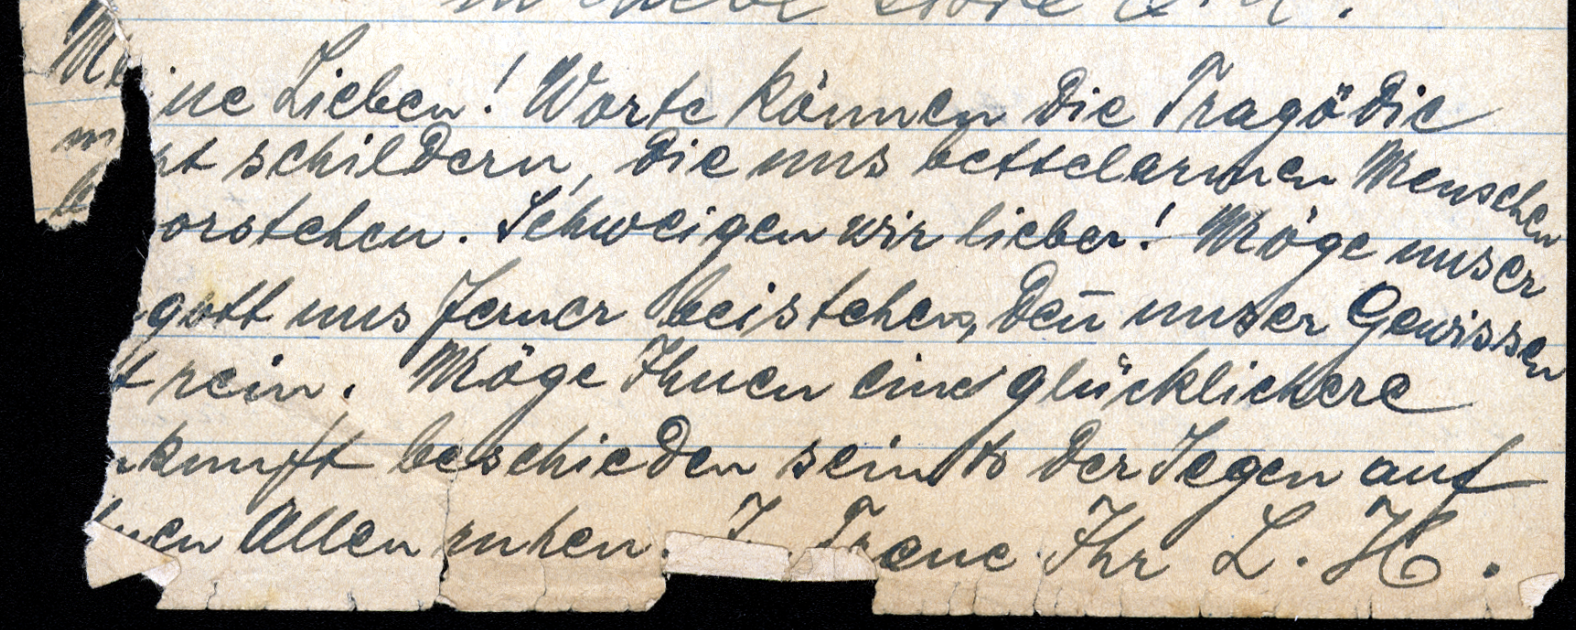 Meine Lieben! Worte können die Tragödie
nicht schildern, die uns bettelarmen Menschen
orstehen. Schweigen wir lieber! Möge unser
gott uns ferner beistehen, den̄ unser Gewissen
t rein. Möge Ihnen eine glücklichere
kunft beschieden sein & der Segen auf
hnen Allen ruhen. In Treue Ihr L. H.